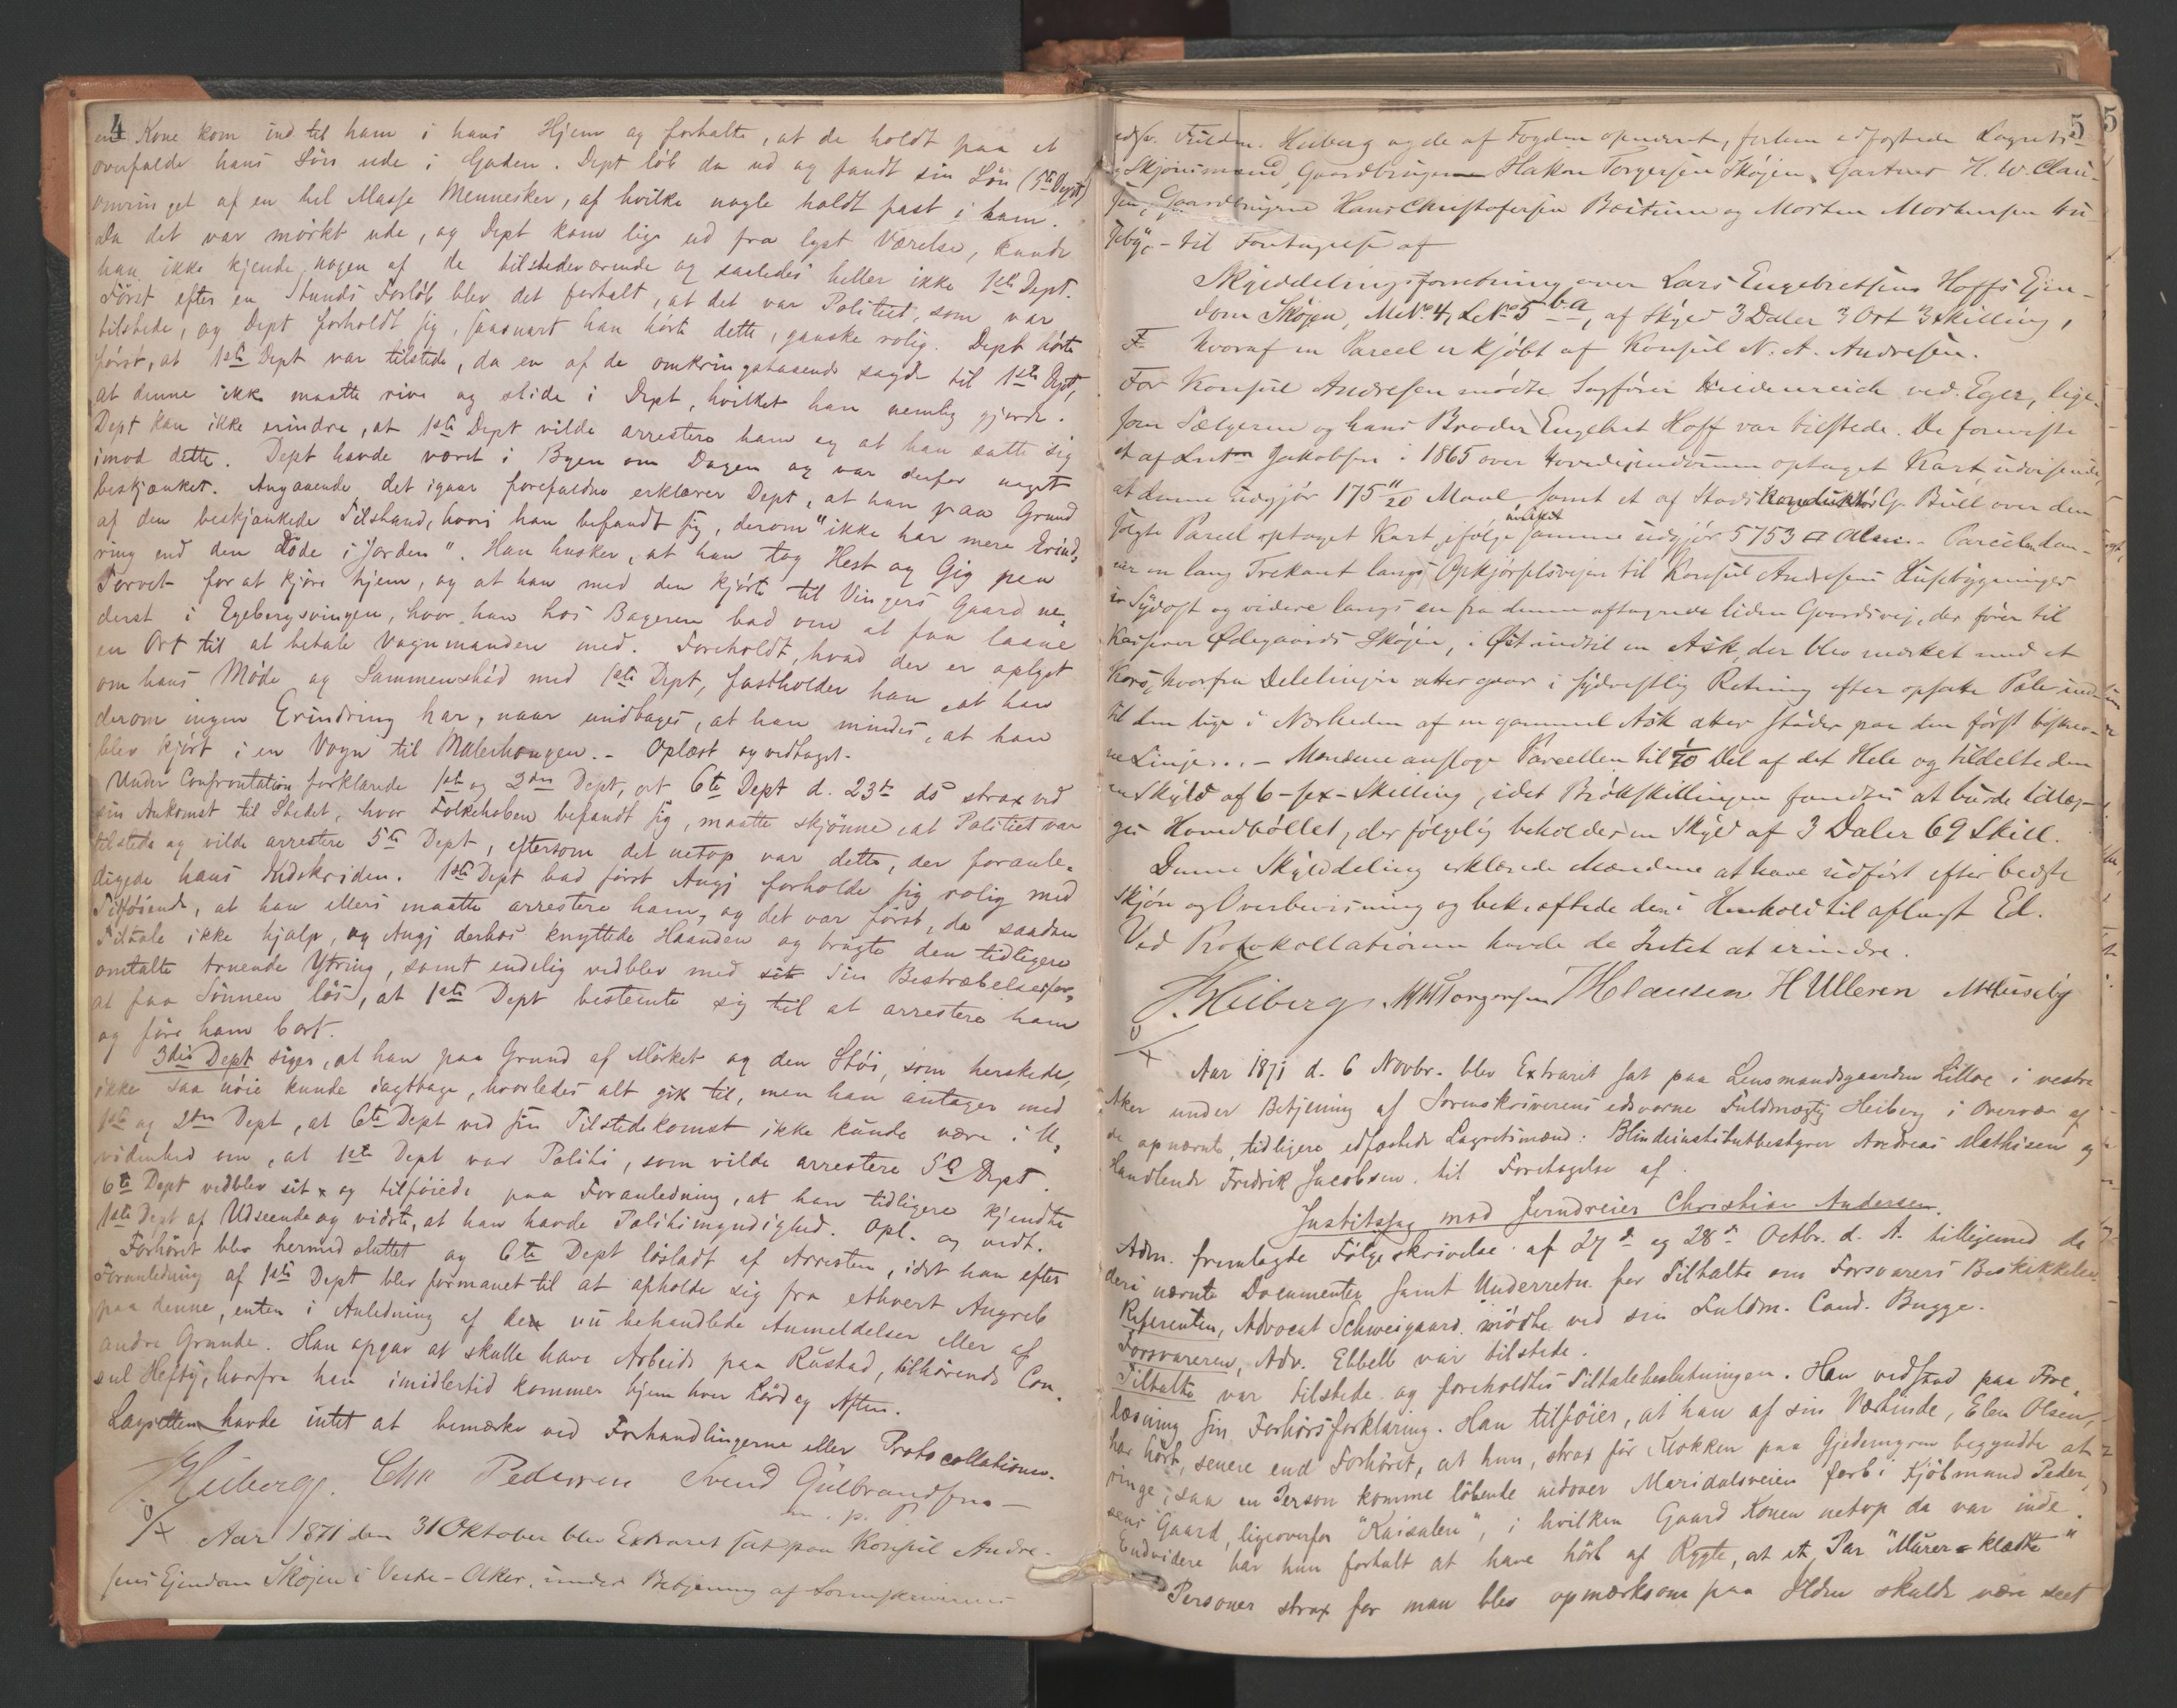 4
en Kone kom ind til ham i hans Hjem og fortalte, at de holdt paa at
overfalde hans Søn ude i Gaden. Dept løb da ud og fandt sin Søn (5te Dept)
omringet af en hel Masse Mennesker, af hvilke nogle holdt fast i ham.
Da det var mørkt ude, og Dept kom lige ud fra lyst Værelse, kunde
han ikke kjende nogen af de tilstedeværende og saaledes heller ikke 1ste Dept.
Først efter en Stunds Forløb blev det fortalt, at det var Politiet, som var
tilstede, og Dept forholdt sig, saasnart han hørte dette, ganske rolig. Dept hørte
først, at 1ste Dept var tilstede, da en af de omkringstaaende sagde til 1ste Dept,
at denne ikke maatte rive og slide i Dept, hvilket han nemlig gjorde.
Dept kan ikke erindre, at 1ste Dept vilde arrestere ham og at han satte sig
imod dette. Dept havde været i Byen om Dagen og var derfor noget
beskjænket. Angaaende det igaar forefaldne erklærer Dept, at han paa Grund
af den beskjænkede Tilstand, hvori han befandt sig, derom "ikke har mere Erind-
ring end den Døde i Jorden". Han husker, at han tog Hest og Gig paa
Torvet for at kjøre hjem, og at han med den kjørte til Vingers Gaard ne-
derst i Egebergsvingen, hvor han hos Bageren bad om at faa laane
en Ort til at betale Vognmanden med. Foreholdt, hvad der er oplyst
om hans Møde og Sammenstød med 1ste Dept, fastholder han at han
derom ingen Erindring har, naar undtages, at han mindes, at han
blev kjørt i en Vogn til Malerhaugen. - Oplæst og vedtaget.
Under Confrontation forklarede 1ste og 2den Dept, at 6te Dept d. 23de ds strax ved
sin Ankomst til Stedet, hvor Folkehoben befandt sig, maatte skjønne, at Politiet var
tilstede og vilde arrestere 5te Dept, eftersom det netop var dette, der foranle-
digede hans Indskriden. 1ste Dept bad først Angj forholde sig rolig med
Tilføiende, at han ellers maatte arrestere ham, og det var først, da saadan
Tiltale ikke hjalp, og Angj derhos knyttede Haanden og brugte den tidligere
omtalte truende Ytring, samt endelig vedblev med sit sin Bestræbelse for
at faa Sønnen løs, at 1ste Dept bestemte sig til at arrestere ham
og føre ham bort.
3die Dept siger, at han paa Grund af Mørket og den Støi, som herskede,
ikke saa nøie kunde iagttage, hvorledes alt gik til, men han antager med
1ste og 2den Dept, at 6te Dept ved sin Tilstedekomst ikke kunde være i U-
videnhed om, at 1ste Dept var Politi, som vilde arrestere 5te Dept.
6te Dept vedblev sit og tilføiede paa Foranledning, at han tidligere kjendte
1ste Dept af Udseende og vidste, at han havde Politimyndighed. Opl. og vedt.
Forhøret blev hermed sluttet og 6te Dept løsladt af Arresten, idet han efter
Foranledning af 1ste Dept blev formanet til at afholde sig fra ethvert Angreb
paa denne, enten i Anledning af den nu behandlede Anmeldelse eller af
andre Grunde. Han opgav at skulle have Arbeide paa Rustad, tilhørende Con-
sul Hefty, hvorfra han imidlertid kommer hjem hver Lørdag Aften.
Lagretten havde intet at bemærke ved Forhandlingerne eller Protocollationen.
Heiberg. Chr Pedersen Svend Gulbrandsen
m. p. P.
Aar 1871 den 31 Oktober blev Extraret sat paa Konsul Andre-
sens Eiendom Skøjen i Vestre-Aker, under Betjening af Sorenskriverens
5
edsv. Fuldm. Heiberg og de af Fogden opnævnte, forhen edfæstede Lagrets-
Skjønsmænd, Gaardbruger Hakon Torgersen Skøjen, Gartner H. W. Clau-
sen, Gaardbrugerne Hans Christofersen Bestum og Morten Mortensen Hu-
seby, - til Foretagelse af
Skylddelingsforretning over Lars Engebretsens Hoffs Ejen-
dom Skøjen, M.No. 4, L.No. 5 b.a, af Skyld 3 Daler 3 Ort 3 Skilling,
hvoraf en Parcel er kjøbt af Konsul N. A. Andresen.
For Konsul Andresen mødte Sagfører Heidenreich ved Eger, lige-
som Sælgeren og hans Broder Engebret Hoff var tilstede. De foreviste
et af Jakobsen i 1865 over Hovedejendommen optaget Kart, udvisende,
at denne udgjør 175 11/20 Maal samt et af Stadskonduktør G. Bull over den
solgte Parcel optaget Kart, ifølge hvilket samme udgjør 5753 □ Alen. - Parcelen dan-
ner en lang Trekant langs Opkjørselsvejen til Konsul Andresens Husebygninger
i Sydost og videre langs en fra denne aftagende liden Gaardsvej, der fører til
Kasserer Ødegaards Skøjen, i Øst indtil en Ask, der blev mærket med et
Kors, hvorfra Delelinjen atter gaar i sydvestlig Retning efter opsatte Pæle ind
til den lige i Nærheden af en gammel Ask atter støder paa den først beskrev-
ne Linje. - Mændene ansloge Parcellen til 1/70 Del af det Hele og tildelte den
en Skyld af 6 - sex - Skilling, idet Brøkskillingen fandtes at burde tillæg-
ges Hovedbøllet, der følgelig beholder en Skyld af 3 Daler 69 Skill.
Denne Skylddeling erklærede Mændene at have udført efter bedste
Skjøn og Overbevisning og bekræftede den i Henhold til aflagt Ed.
Ved Protokollationen havde de Intet at erindre.
Heiberg. Torgersen H Clausen H Ulleren M Huseby
Aar 1871 d. 6 Novbr. blev Extraret sat paa Lensmandsgaarden Lilloe i vestre
Aker under Betjening af Sorenskriverens edsvorne Fuldmægtig Heiberg i Overvær af
de opnævnte, tidligere edfæstede Lagretsmænd: Blindeinstitutbestyrer Andreas Mathisen og
Handlende Fredrik Jacobsen til Foretagelse af
Justitssag mod Jerndreier Christian Andersen.
Adm. fremlagde Følgeskrivelse af 27de og 28de Octbr. d. A. tilligemed de
deri nævnte Documenter samt Underretn. for Tiltalte om Forsvarers Beskikkelse.
Referenten, Advocat Schweigaard mødte ved sin Fuldm. Cand. Bugge.
Forsvareren, Adv. Ebbell var tilstede.
Tiltalte var tilstede og foreholdtes Tiltalebeslutningen. Han vedstod paa Fore-
læsning sin Forhørsforklaring. Han tilføier, at han af sin Værtinde, Elen Olsen,
har hørt, senere end Forhøret, at hun, strax før Klokken paa Gjedemyren begyndte at
ringe, saa en Person komme løbende nedover Maridalsveien forbi Kjøbmand Peder-
sens Gaard, ligeoverfor "Kuisalen", i hvilken Gaard Konen netop da var inde.
Endvidere har hun fortalt at have hørt af Rygte, at et Par "Murer-klædte"
Personer strax før man blev opmærksom paa Ilden skulde være seet